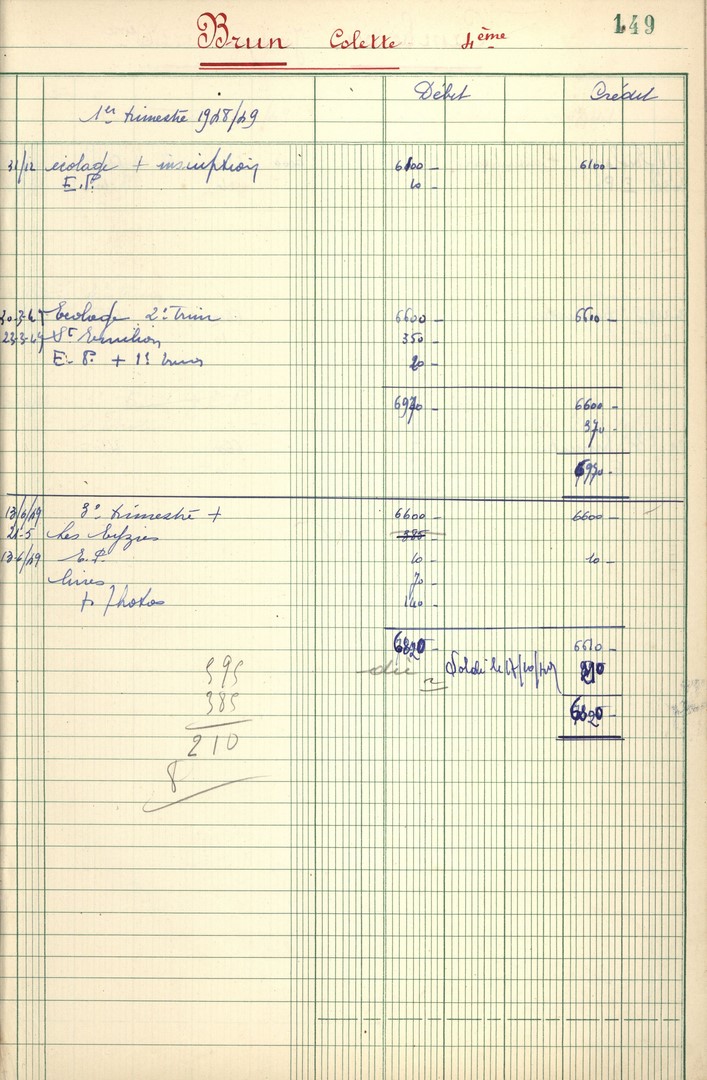 149
Brun Colette 4ème
Débit Crédit
1er trimestre 1948/49
31/12 écolage + inscription 6100 - 6100 -
E.P. 10 -
Ecolage 2e Trim 6600 - 6610 -
St Emilion 350 -
E. P. + 20 -
6970 - 6600 -
370 -
6970 -
13/6/49 3e trimestre + 6600 - 6600 -
21-5 Les Eyzies 385 -
13-6/49 E.P. 10 - 10 -
livres 70 -
+ Photos 140 -
6820 - 6610 -
dû Soldé le 17/10/49 210 -
6820 -
595
385
210
8